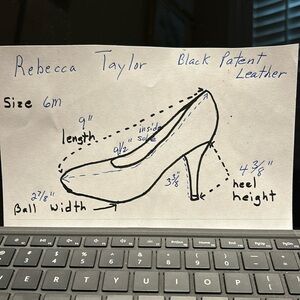 Rebecca Taylor
Black Patent
Leather
Size 6M
9"
length
inside
sole
9 1/2"
3 3/8"
4 3/8"
heel
height
2 7/8"
Ball Width
W E R T Y U I O P